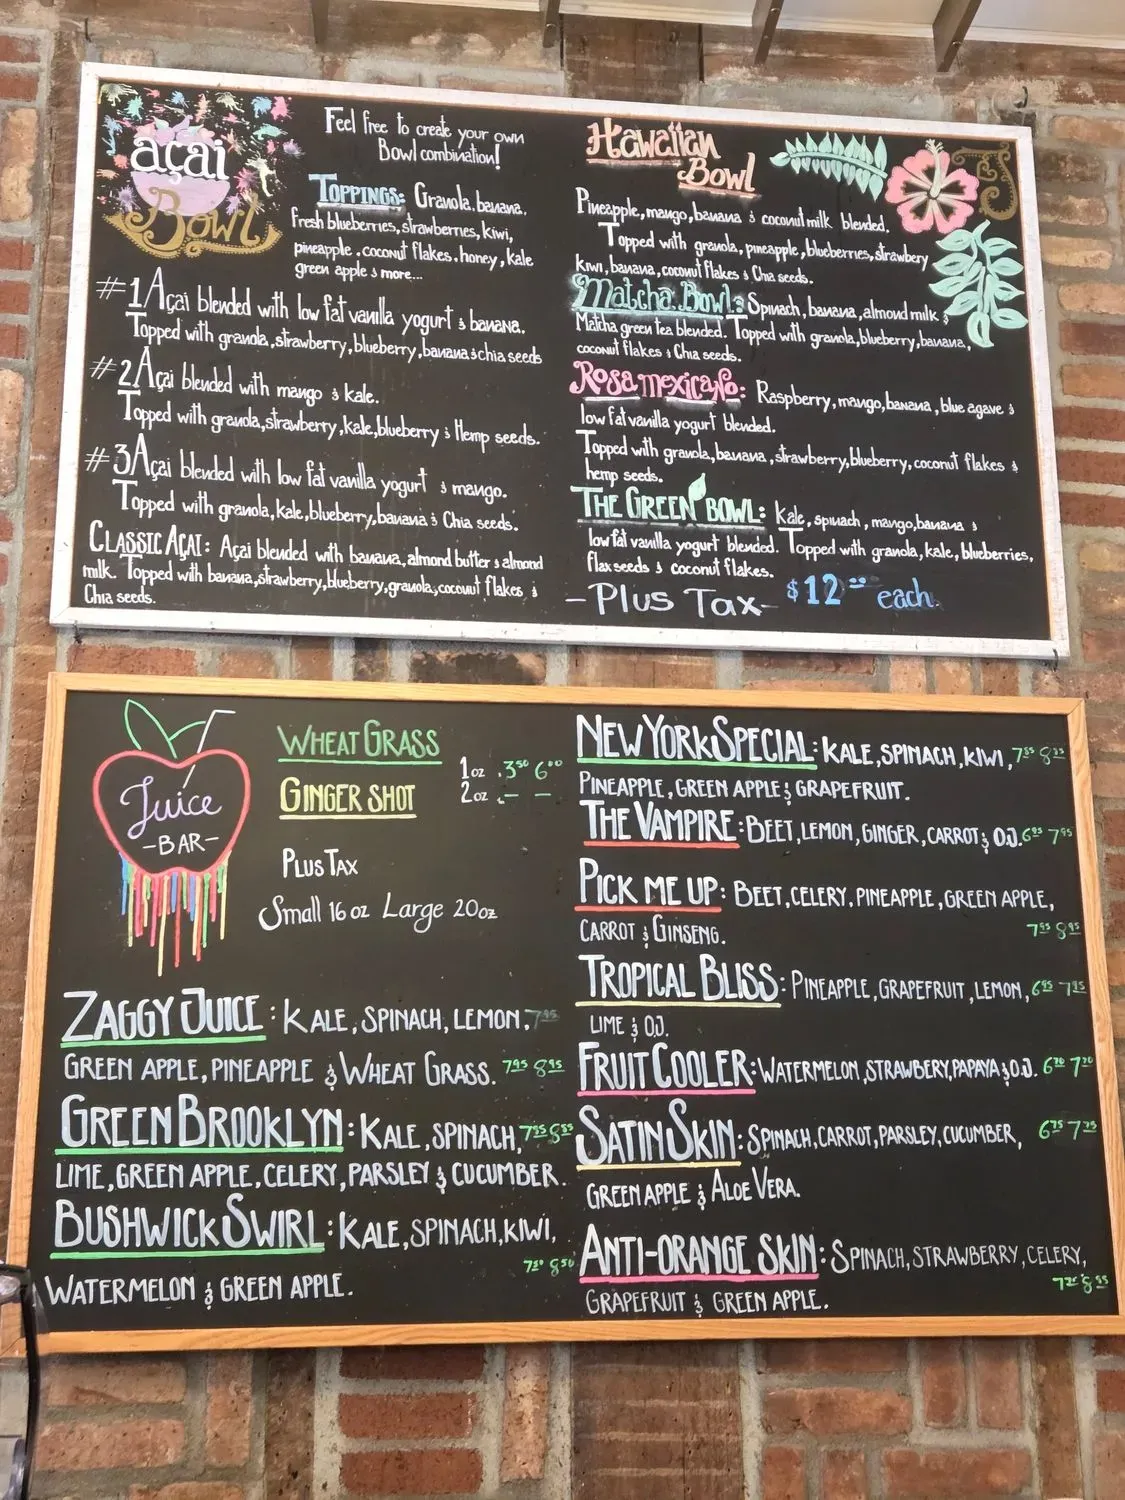 açai
Bowl
Feel free to create your own
Bowl combination!
TOPPINGS: Granola, banana,
fresh blueberries, strawberries, kiwi,
pineapple, coconut flakes, honey, kale
green apple & more...
#1 Açai blended with low fat vanilla yogurt & banana.
Topped with granola, strawberry, blueberry, banana & chia seeds
#2 Açai blended with mango & kale.
Topped with granola, strawberry, kale, blueberry & Hemp seeds.
#3 Açai blended with low fat vanilla yogurt & mango.
Topped with granola, kale, blueberry, banana & Chia seeds.
CLASSIC AÇAI: Açai blended with banana, almond butter & almond
milk. Topped with banana, strawberry, blueberry, granola, coconut flakes &
Chia seeds.
Hawaiian
Bowl
Pineapple, mango, banana & coconut milk blended.
Topped with granola, pineapple, blueberries, strawbery
kiwi, banana, coconut flakes & Chia seeds.
Matcha Bowl: Spinach, banana, almond milk &
Matcha green tea blended. Topped with granola, blueberry, banana,
coconut flakes & Chia seeds.
Rosa mexicano: Raspberry, mango, banana, blue agave &
low fat vanilla yogurt blended.
Topped with granola, banana, strawberry, blueberry, coconut flakes &
hemp seeds.
THE GREEN BOWL: Kale, spinach, mango, banana &
low fat vanilla yogurt blended. Topped with granola, kale, blueberries,
flaxseeds & coconut flakes.
-Plus Tax- $12 each.
Juice
-BAR-
WHEAT GRASS
GINGER SHOT
1oz .3.50 6.00
2oz
PLUS TAX
Small 16 oz Large 20 oz
ZAGGY JUICE: KALE, SPINACH, LEMON,
GREEN APPLE, PINEAPPLE & WHEAT GRASS. 7.95 8.95
GREEN BROOKLYN: KALE, SPINACH,
LIME, GREEN APPLE, CELERY, PARSLEY & CUCUMBER.
BUSHWICK SWIRL: KALE, SPINACH, KIWI,
WATERMELON & GREEN APPLE.
NEW YORK SPECIAL: KALE, SPINACH, KIWI,
PINEAPPLE, GREEN APPLE & GRAPEFRUIT.
THE VAMPIRE: BEET, LEMON, GINGER, CARROT & O.J. 6.95 7.95
PICK ME UP: BEET, CELERY, PINEAPPLE, GREEN APPLE,
CARROT & GINSENG. 7.95 8.95
TROPICAL BLISS: PINEAPPLE, GRAPEFRUIT, LEMON,
LIME & O.J.
FRUIT COOLER: WATERMELON, STRAWBERY, PAPAYA & O.J.
SATIN SKIN: SPINACH, CARROT, PARSLEY, CUCUMBER, 6.75 7.75
GREEN APPLE & ALOE VERA.
ANTI-ORANGE SKIN: SPINACH, STRAWBERRY, CELERY,
GRAPEFRUIT & GREEN APPLE.